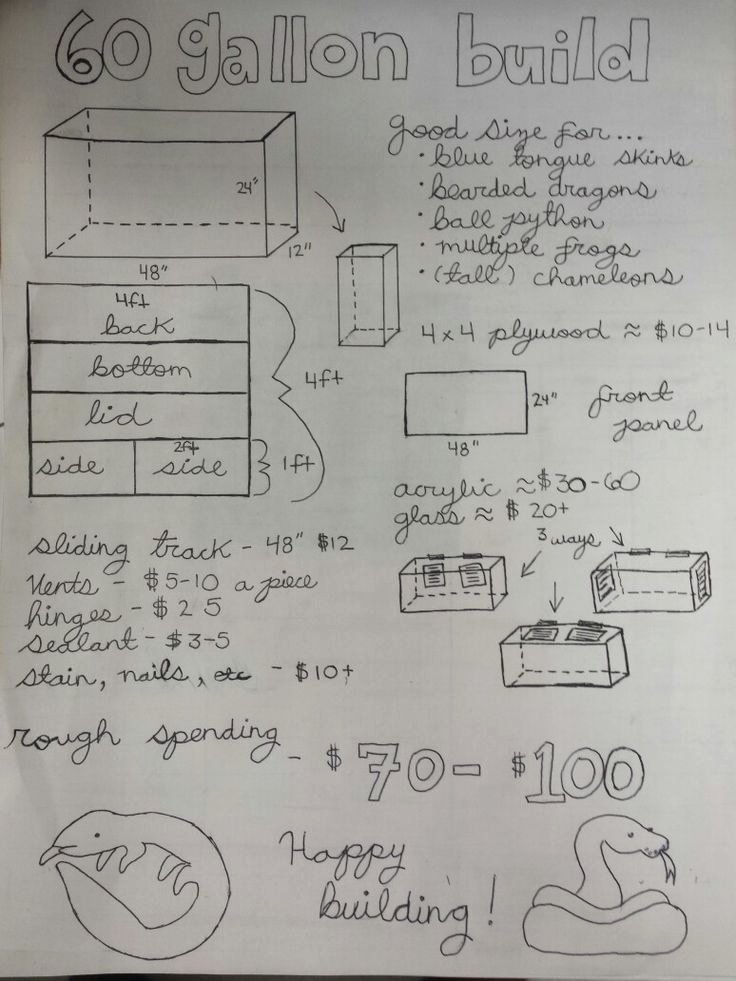 60 gallon build
good size for...
• blue tongue skinks
• bearded dragons
• ball python
• multiple frogs
• (tall) chameleons
24"
12"
48"
4ft
back
bottom
lid
side
2ft
side
4ft
1ft
4x4 plywood ≈ $10-14
24"
48"
front
panel
acrylic ≈ $30-60
glass ≈ $20+
3 ways
sliding track - 48" $12
vents - $5-10 a piece
hinges - $2-5
sealant - $3-5
stain, nails, etc - $10+
rough spending - $70 - $100
Happy
building!